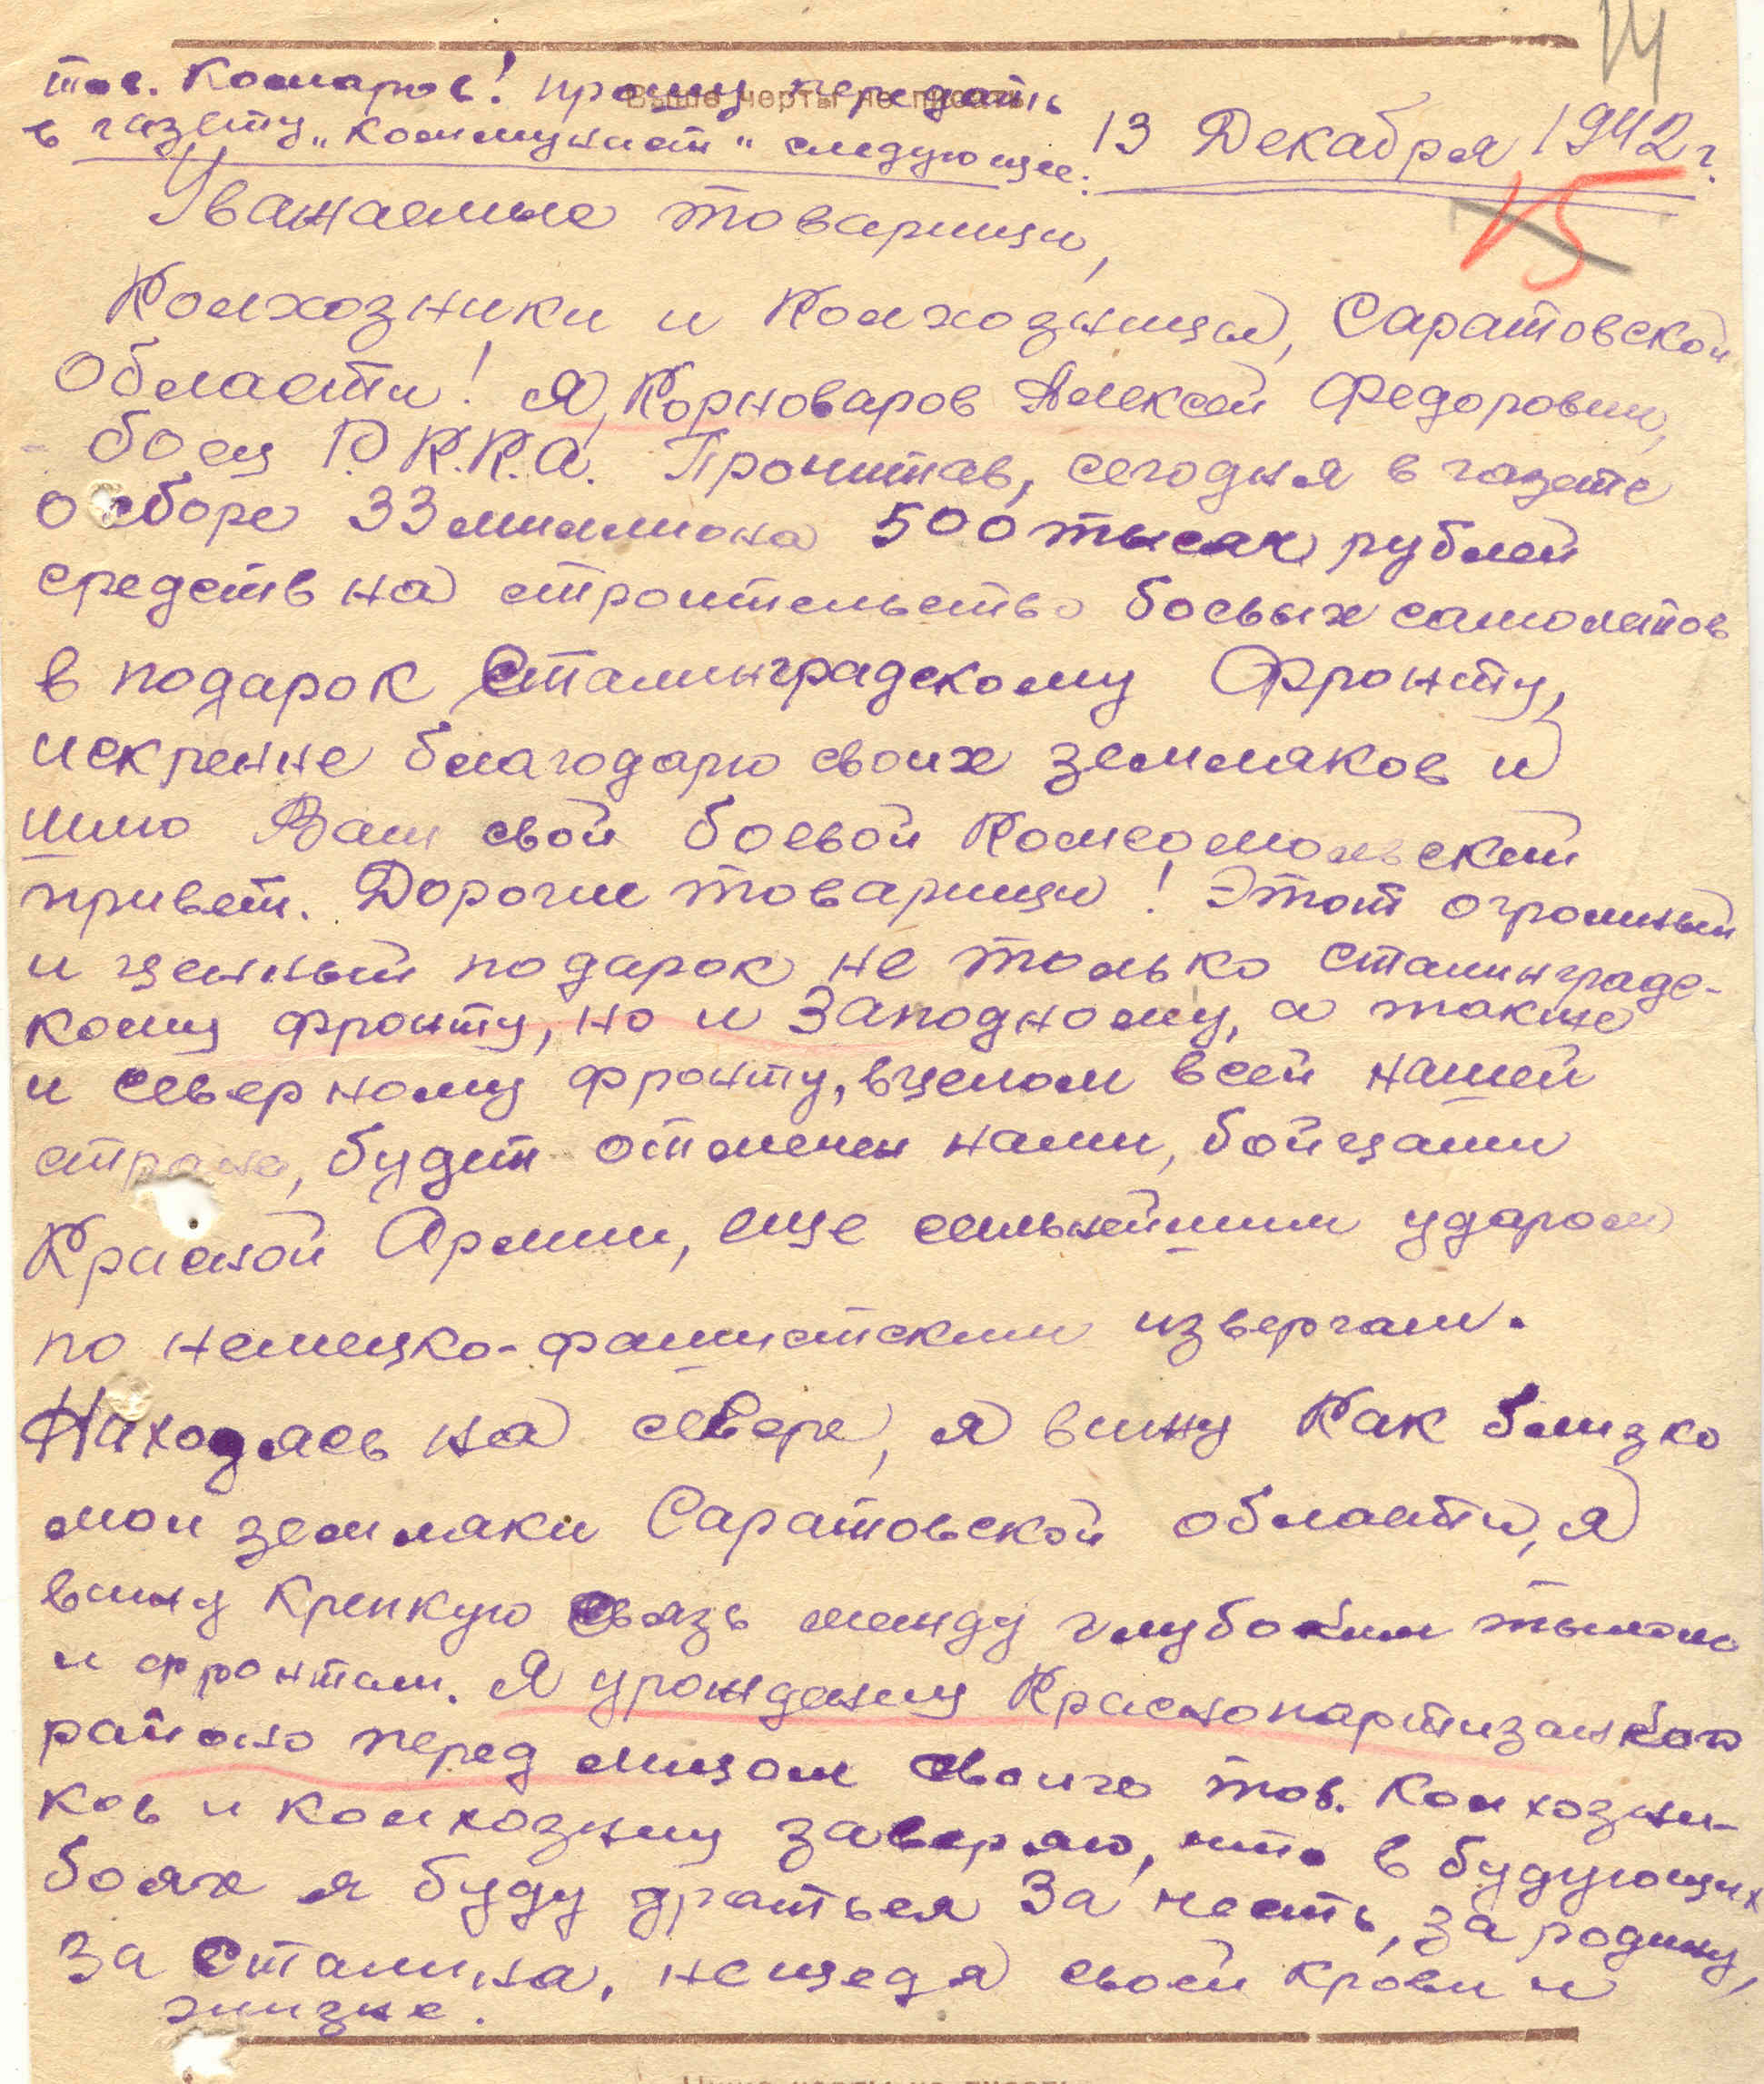 14
тов. Комаров! прошу передать
Выше черты не писать
в газету „Коммунист" следующее:
13 Декабря 1942 г.
15
Уважаемые товарищи,
Колхозники и Колхозницы, Саратовской
Области! Я, Корноваров Алексей Федорович,
боец Р.К.К.А. Прочитав, сегодня в газете
о сборе 33 миллиона 500 тысяч рублей
средств на строительство боевых самолетов
в подарок Сталинградскому Фронту,
искренне благодарю своих земляков и
шлю Вам свой боевой Комсомольский
привет. Дорогие товарищи! Этот огромный
и ценный подарок не только сталинградс-
кому фронту, но и Западному, а также
и северному фронту, вцелом всей нашей
стране, будет отмечен нами, бойцами
Красной Армии, еще сильнейшим ударом
по немецко-фашистским извергам.
Находясь на севере, я вижу Как близко
мои земляки Саратовской области, я
вижу крепкую связь между глубоким тылом
и фронтам. Я урожденец Краснопартизанского
района перед лицом своих тов. Колхозни-
ков и колхозниц заверяю, что в будующих
боях я буду драться За честь, за родину,
За Сталина, нещедя своей крови и
жизне.